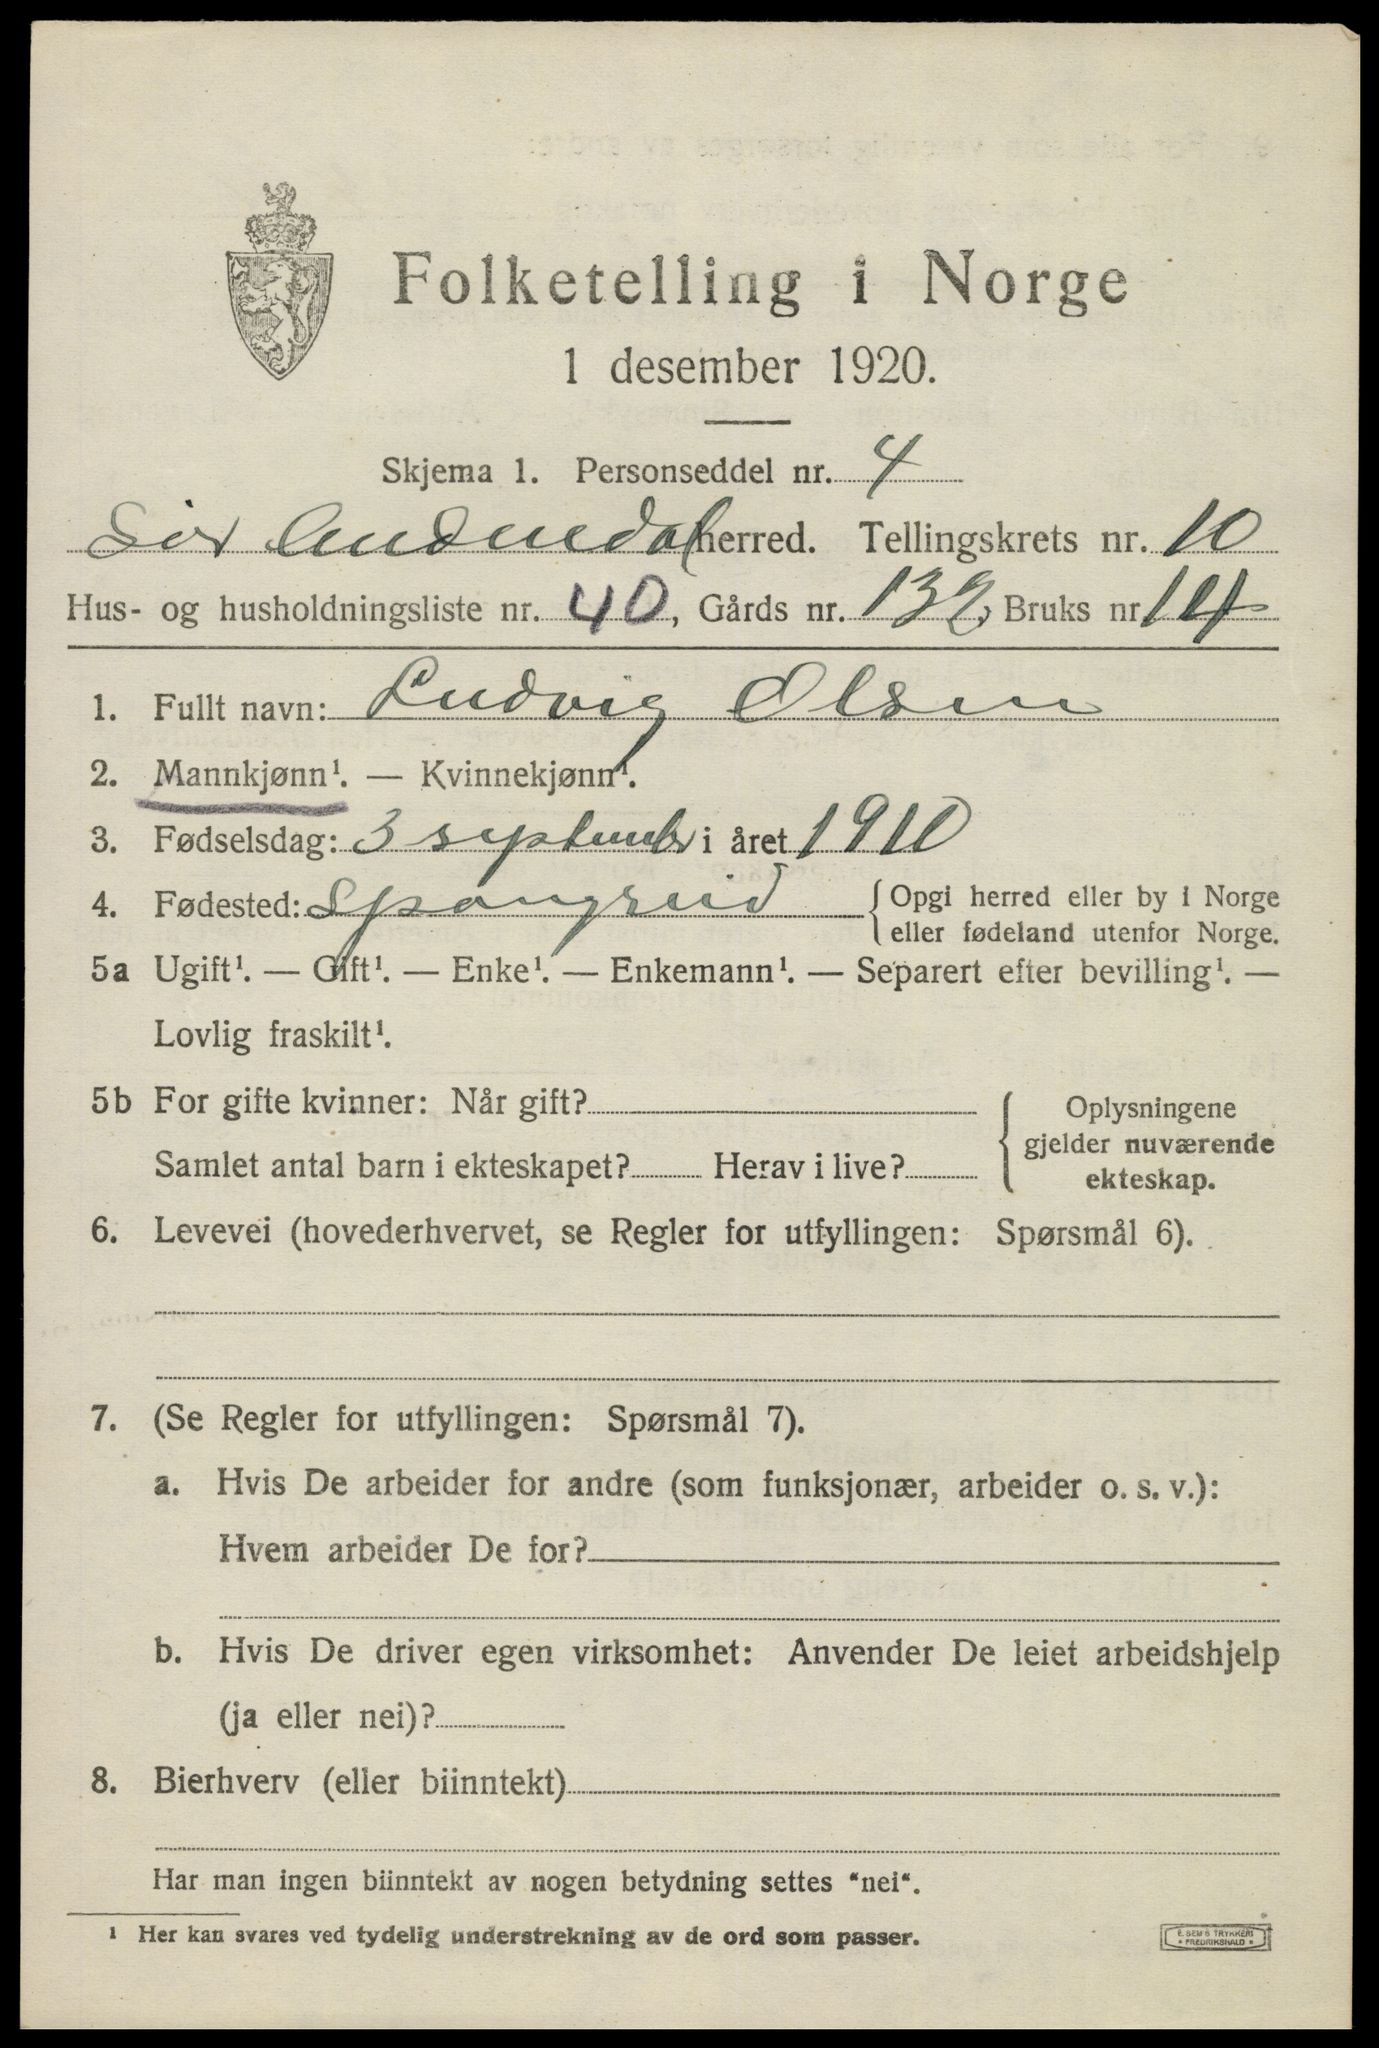 Folketelling i Norge
1 desember 1920.
Skjema 1. Personseddel nr. 4
Sør Audnedal herred. Tellingskrets nr. 10
Hus- og husholdningsliste nr. 40, Gårds nr. 132, Bruks nr 14
1. Fullt navn: Ludvig Olsen
2. Mannkjønn¹. — Kvinnekjønn¹.
3. Fødselsdag: 3 september i året 1910
4. Fødested: Spangreid {Opgi herred eller by i Norge
eller fødeland utenfor Norge.
5a Ugift¹. — Gift¹. — Enke¹. — Enkemann¹. — Separert efter bevilling¹. —
Lovlig fraskilt¹.
5b For gifte kvinner: Når gift? { Oplysningene
gjelder nuværende
Samlet antal barn i ekteskapet? Herav i live?
ekteskap.
6. Levevei (hovederhvervet, se Regler for utfyllingen: Spørsmål 6).
7. (Se Regler for utfyllingen: Spørsmål 7).
a. Hvis De arbeider for andre (som funksjonær, arbeider o. s. v.):
Hvem arbeider De for?
b. Hvis De driver egen virksomhet: Anvender De leiet arbeidshjelp
(ja eller nei)?
8. Bierhverv (eller biinntekt)
Har man ingen biinntekt av nogen betydning settes "nei".
¹ Her kan svares ved tydelig understrekning av de ord som passer.
E. SEM'S TRYKKERI
* FREDRIKSHALD *